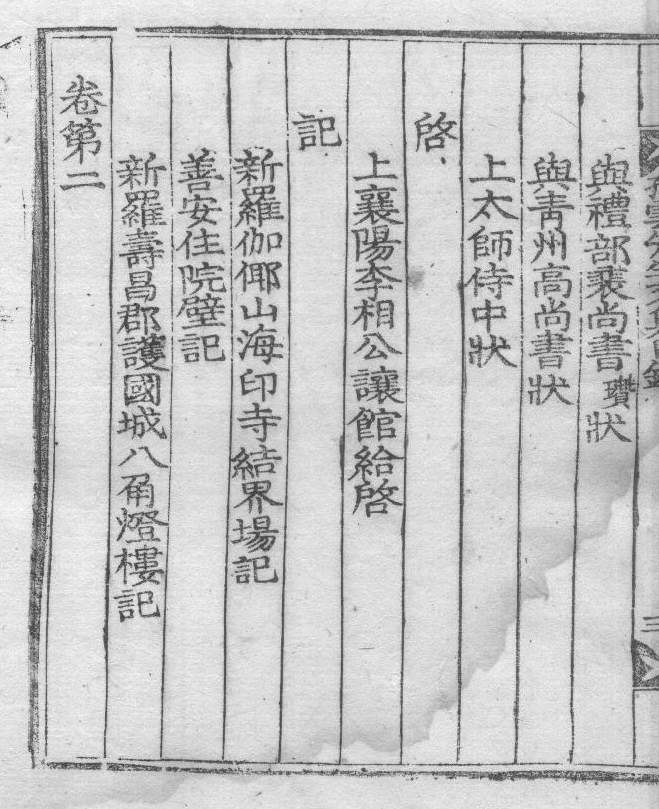 三
與禮部裴尚書瓚狀
與靑州高尚書狀
上太師侍中狀
啓
上襄陽李相公讓館給啓
記
新羅伽倻山海印寺結界場記
善安住院壁記
新羅壽昌郡護國城八角燈樓記
卷第二